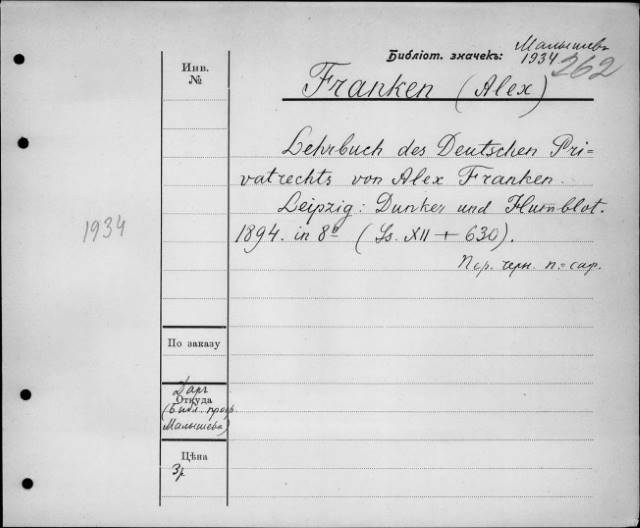 Библіот. значекъ: Малышевъ
1934. 262
Инв.
№
Franken (Alex)
Lehrbuch des Deutschen Pri=
vatrechts von Alex Franken.
Leipzig: Dunker und Humblot.
1894. in 8º (Ss. XII + 630).
Пер. черн. п.= саф.
1934
По заказу
Даръ
Откуда
(Библ. проф.
Малышева)
Цѣна
3р